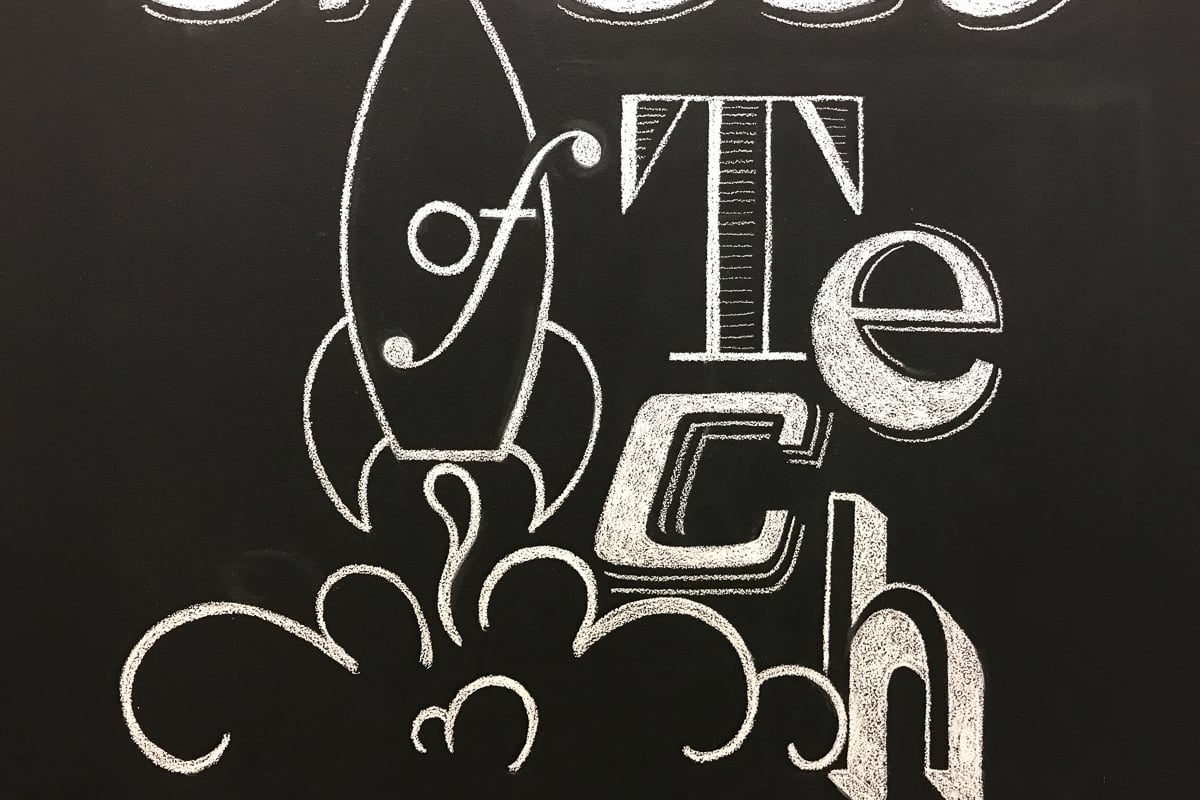 of Tech